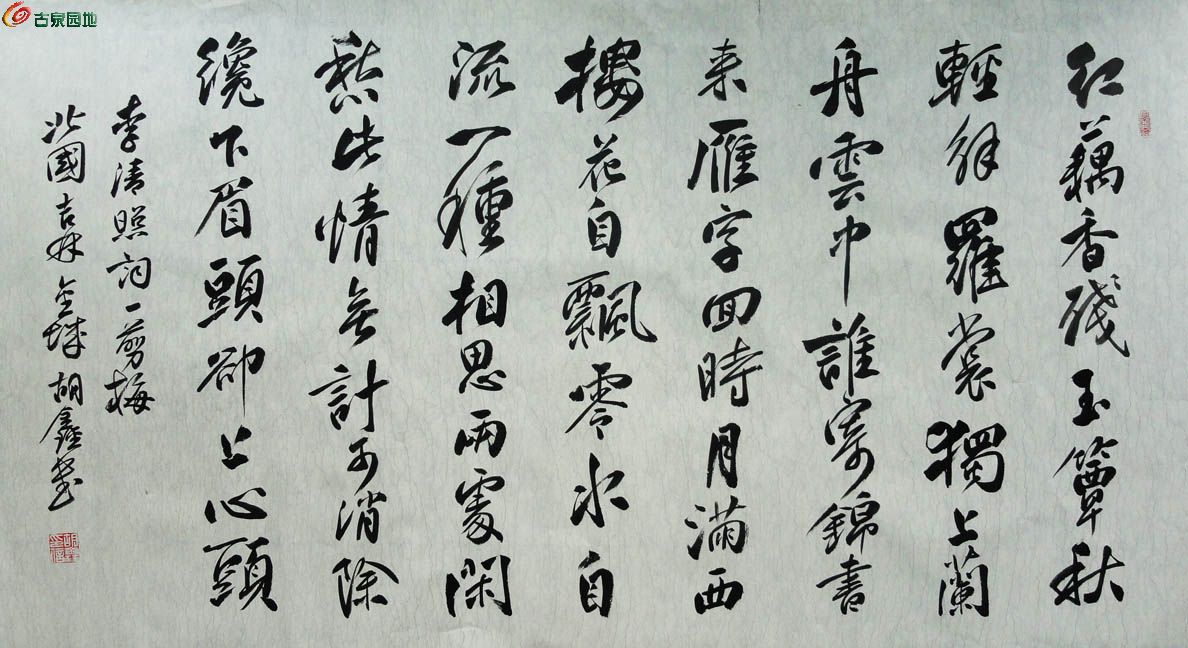 古泉园地
红藕香殘玉簟秋
輕解羅裳獨上蘭
舟雲中誰寄錦書
来雁字回時月满西
樓花自飄零水自
流一種相思兩處閑
愁此情無計可消除
纔下眉頭卻上心頭
李清照词一剪梅
北國吉林金城胡鑫